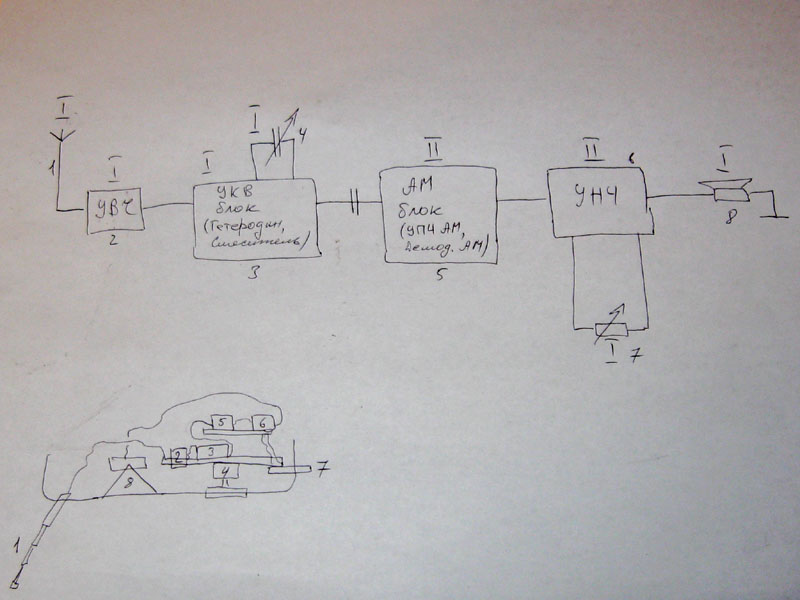 I
1
I
УВЧ
2
I
I
4
УКВ
блок
(Гетеродин,
Смеситель)
3
II
АМ
блок
(УПЧ АМ,
Демод. АМ)
5
II
6
УНЧ
I
8
I
7
5
6
2
3
4
8
7
1